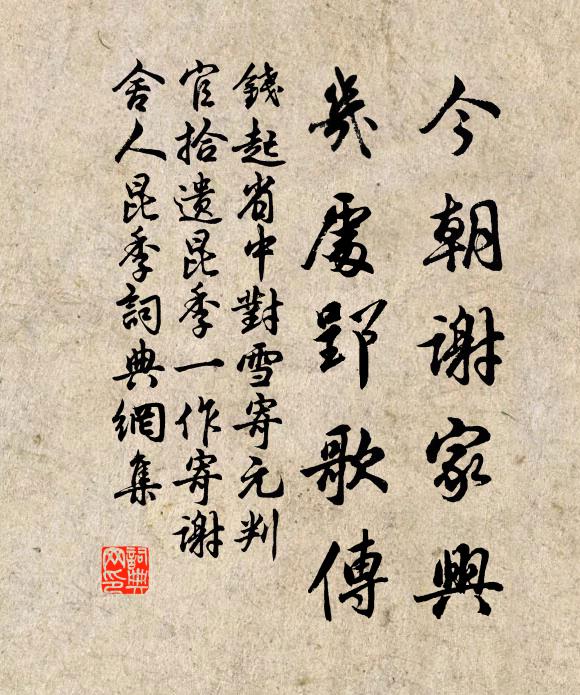 今朝謝家興
幾處郢歌傳
錢起省中對雪寄元判
官拾遺昆季一作寄謝
舍人昆季詞典網集
詞典網印